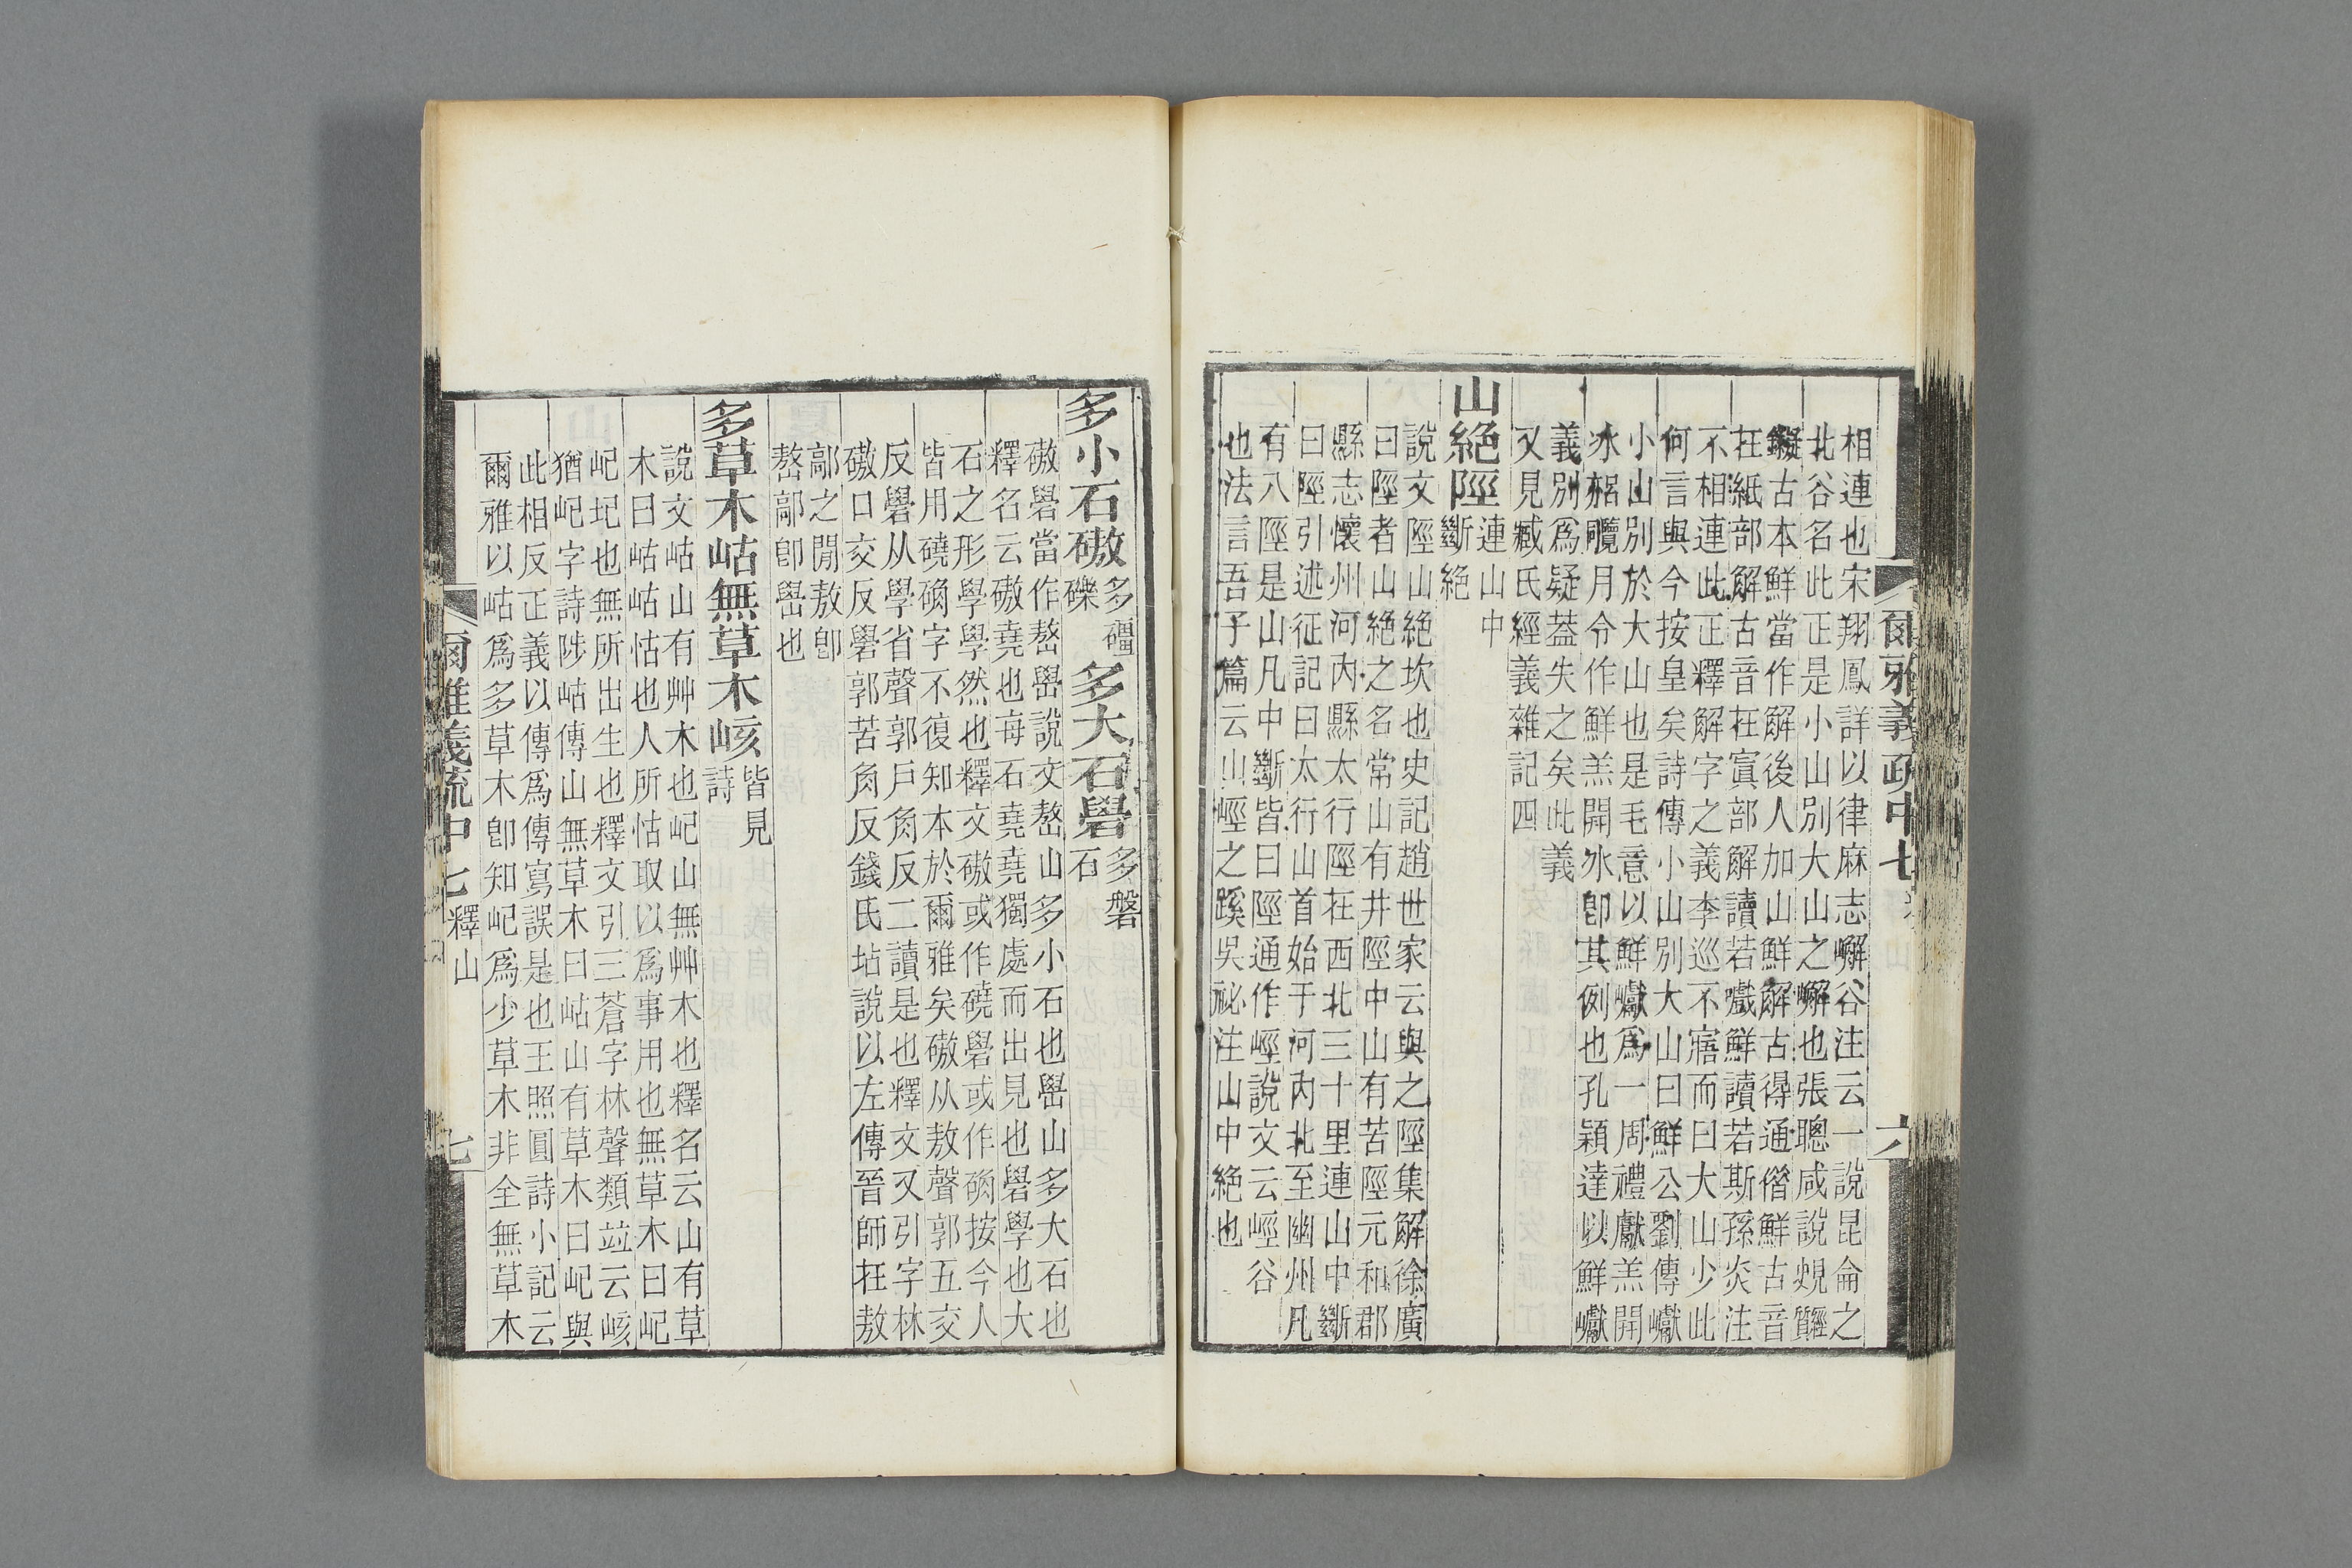 相連也宋翔鳳詳以律麻志嶰谷注云一說昆侖之
北谷名此正是小山別大山之嶰也張聰咸說
古本鮮當作解後人加山鮮解古得通僃鮮古音
在紙部解古音在寘部解讀若巇鮮讀若斯孫炎注
不相連此正釋解字之義李巡不寤而曰大山少此
何言與今按皇矣詩傳小山別大山曰鮮公劉傳巘
小山別於大山也是毛意以鮮巘爲一周禮獻羔開
冰月令作鮮羔開冰卽其例也孔穎達以鮮巘
義別爲疑葢失之矣此義
又見臧氏經義雜記四
山絕陘
連山中
斷絕
說文陘山絕坎也史記趙世家云與之陘集解徐廣
曰陘者山絕之名常山有井陘中山有苦陘元和郡
縣志懷州河內縣太行陘在西北三十里連山中斷
曰陘引述征記曰太行山首始于河內北至幽州凡
有八陘是山凡中斷皆曰陘通作峌說文云峌谷
也法言吾子篇云山峌之蹊吳祕注山中絕也
爾雅義疏中七
六
多小石磝
多礓
礫
多大石礐
多磐
石
磝礐當作嶅嶨說文嶅山多小石也嶨山多大石也
釋名云磝堯也每石堯堯獨處而出見也礐學也大
石之形學學然也釋文磝或作磽礐或作礭按今人
皆用磽确字不復知本於爾雅矣磝从敖聲郭五交
反礐从學省聲郭戶角反二讀是也釋文又引字林
磝口交反礐郭苦角反錢氏坫說以左傳晉師在敖
鄗之閒敖卽
嶅鄗卽嶨也
多草木岵無草木峐
皆見
詩
說文岵山有艸木也屺山無艸木也釋名云山有草
木曰岵岵怙也人所怙取以爲事用也無草木曰屺
屺圮也無所出生也釋文引三蒼字林聲類竝云峐
猶屺字詩陟岵傳山無草木曰岵山有草木曰屺與
此相反正義以傳爲傳寫誤是也王照圓詩小記云
爾雅以岵爲多草木卽知屺爲少草木非全無草木
爾雅義疏中七
釋山
七